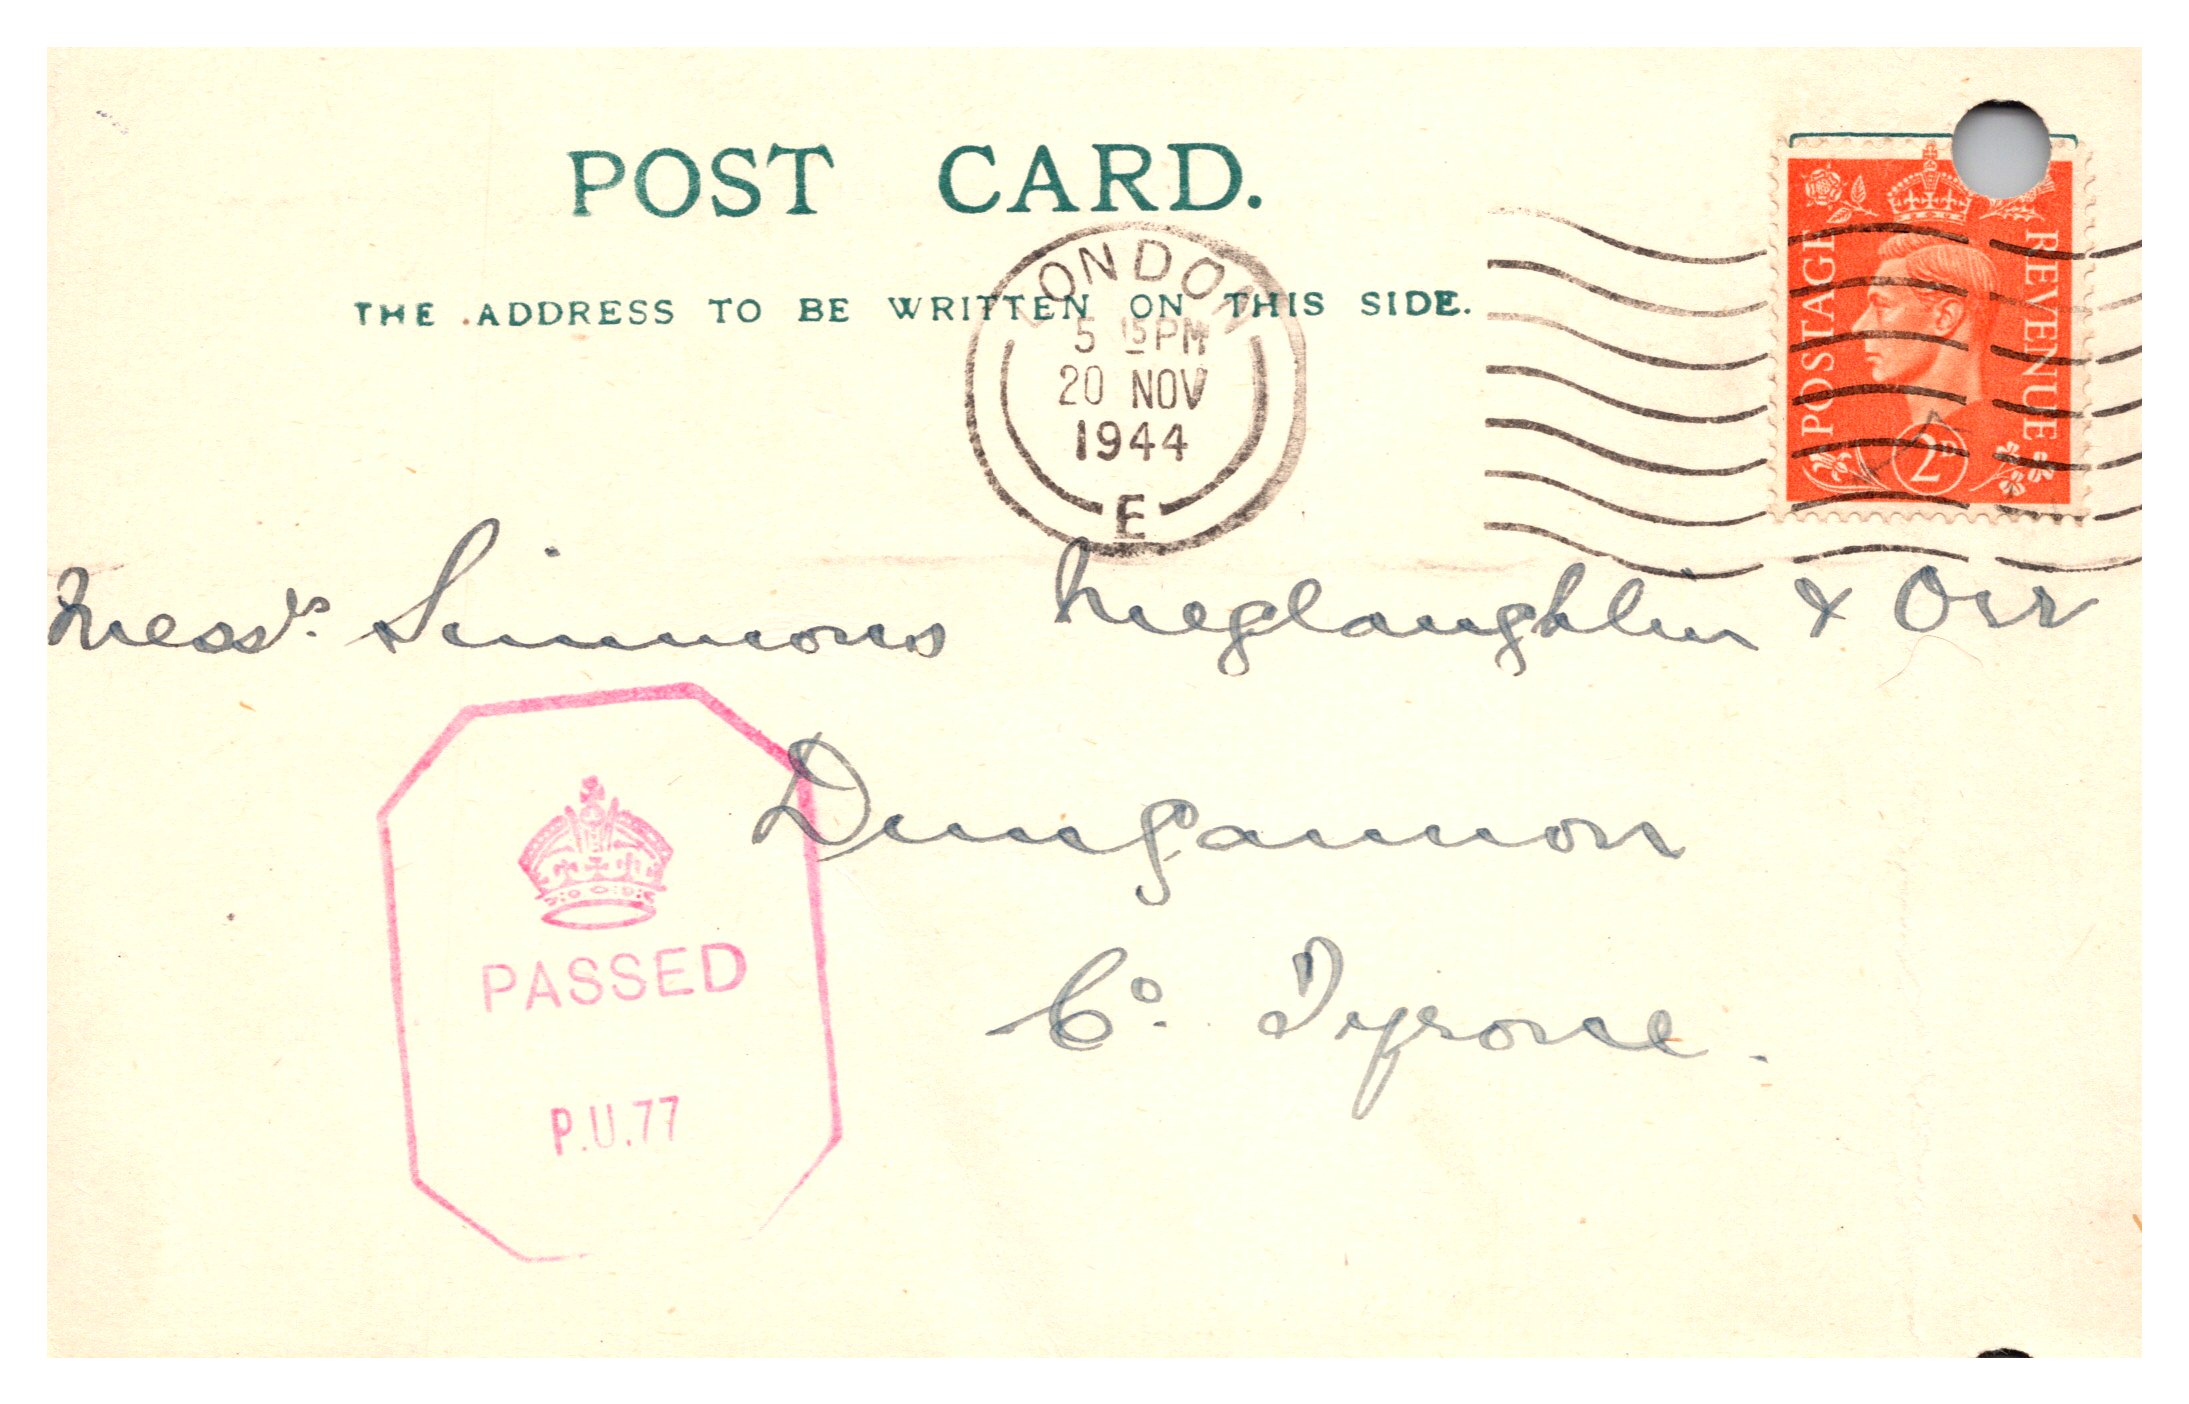 POST CARD.
THE ADDRESS TO BE WRITTEN ON THIS SIDE.
LONDON
5 15 PM
20 NOV
1944
E
POSTAGE
REVENUE
2D
Messrs. Simmons Meglaughlin & Orr
Dungannon
Co. Tyrone.
PASSED
P.U.77